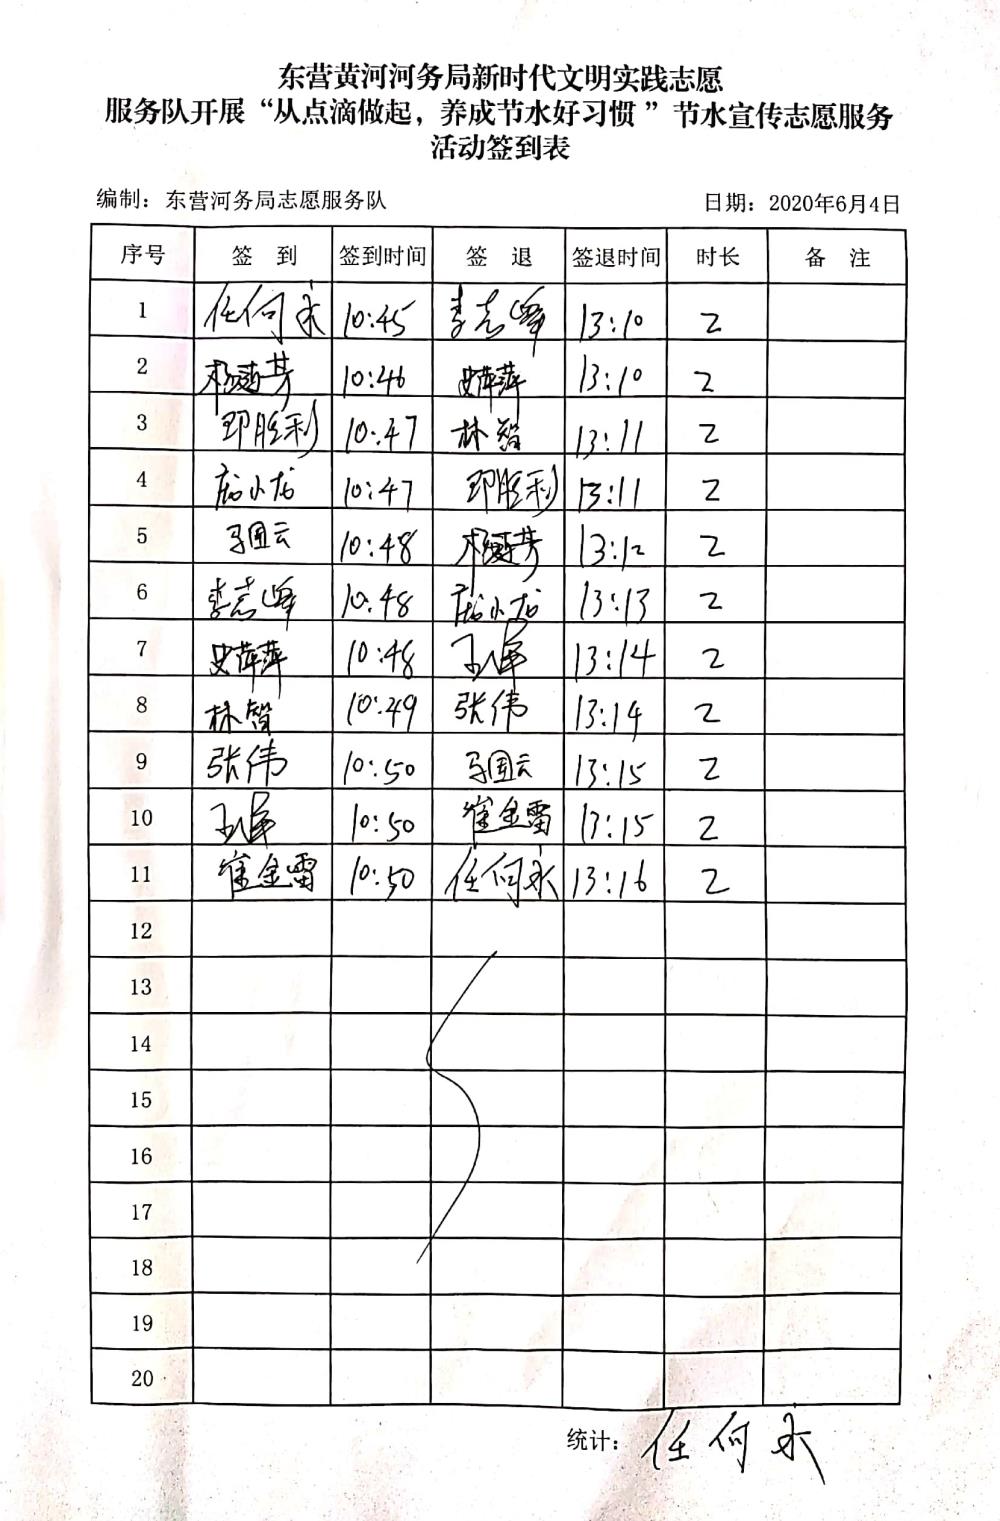 东营黄河河务局新时代文明实践志愿
服务队开展“从点滴做起，养成节水好习惯”节水宣传志愿服务
活动签到表
编制：东营河务局志愿服务队 日期：2020年6月4日
序号 签到 签到时间 签退 签退时间 时长 备注
1 任何永 10:45 李志峰 13:10 2
2 10:46 史萍萍 13:10 2
3 胜利 10:47 林智 13:11 2
4 小龙 10:47 胜利 13:11 2
5 马国云 10:48 13:12 2
6 李志峰 10:48 小龙 13:13 2
7 史萍萍 10:48 王 13:14 2
8 林智 10:49 张伟 13:14 2
9 张伟 10:50 马国云 13:15 2
10 王 10:50 崔金雷 13:15 2
11 崔金雷 10:50 任何永 13:16 2
12
13
14
15
16
17
18
19
20
统计：任何永